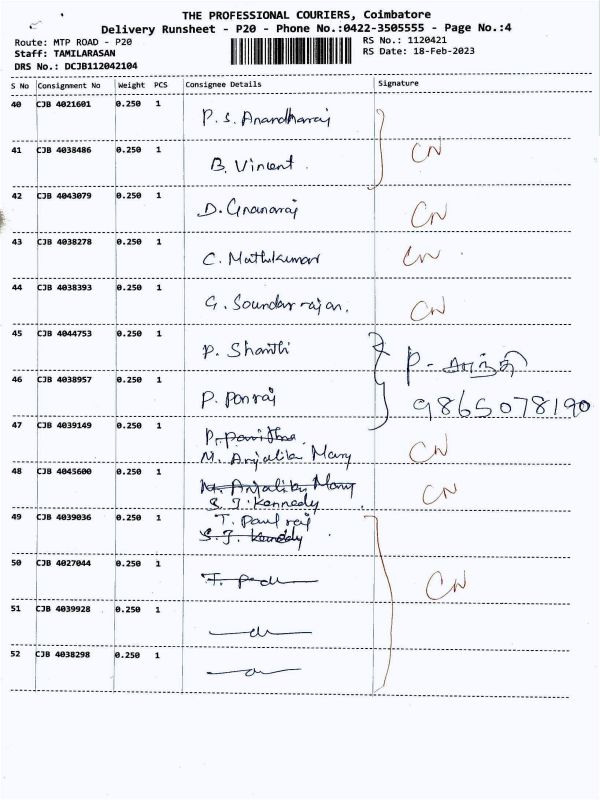 THE PROFESSIONAL COURIERS, Coimbatore
Delivery Runsheet - P20 - Phone No.:0422-3505555 - Page No.:4
Route: MTP ROAD - P20 RS No.: 1120421
Staff: TAMILARASAN RS Date: 18-Feb-2023
DRS No.: DCJB112042104
S No Consignment No Weight PCS Consignee Details Signature
40 CJB 4021601 0.250 1 P. S. Anandharaj
41 CJB 4038486 0.250 1 B. Vincent. CN
42 CJB 4043079 0.250 1 D. Gnanaraj CN
43 CJB 4038278 0.250 1 C. Muthukumar CN
44 CJB 4038393 0.250 1 G. Soundarrajan. CN
45 CJB 4044753 0.250 1 P. Shanthi P- சாந்தி
46 CJB 4038957 0.250 1 P. Ponraj 9865078190
47 CJB 4039149 0.250 1 P. Pavithra
M. Anjalin Mary CN
48 CJB 4045600 0.250 1 M. Anjalin Mary CN
S. J. Kennedy
49 CJB 4039036 0.250 1 T. Paulraj
S. J. Kennedy
50 CJB 4027044 0.250 1 CN
51 CJB 4039928 0.250 1
52 CJB 4038298 0.250 1